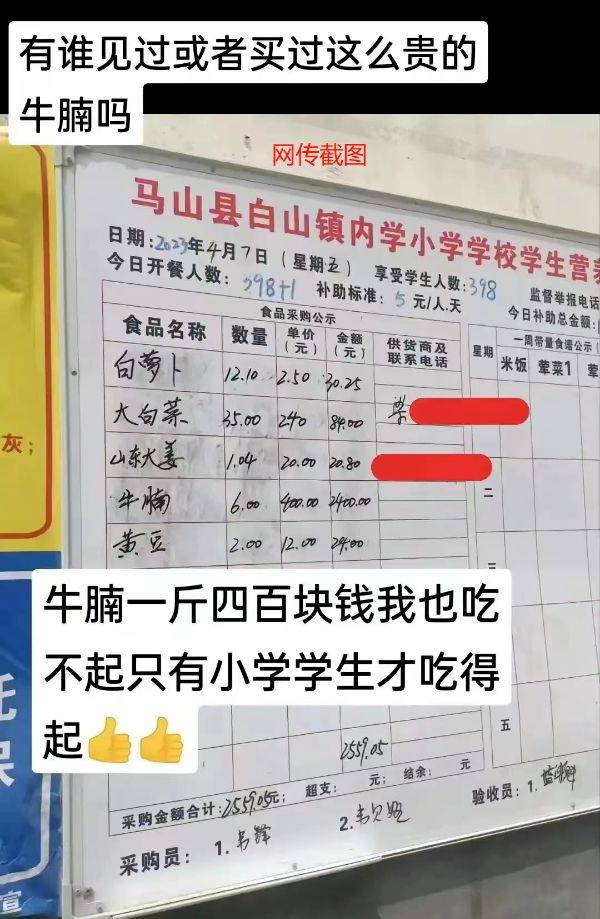 有谁见过或者买过这么贵的
牛腩吗
网传截图
马山县白山镇内学小学学校学生营养
日期:2023年4月7日(星期五) 享受学生人数:398
今日开餐人数:398+1 补助标准:5元/人.天
监督举报电话
今日补助总金额:
食品采购公示
食品名称 数量 单价(元) 金额(元) 供货商及联系电话
白萝卜 12.10 2.50 30.25
大白菜 35.00 240 84.00
山东大姜 1.04 20.00 20.80
牛腩 6.00 400.00 2400.00
黄豆 2.00 12.00 24.00
一周带量食谱公示(
星期 米饭 荤菜1 荤菜
二
三
五
灰;
牛腩一斤四百块钱我也吃
不起只有小学学生才吃得
起👍👍
托
保
宣
2559.05
采购金额合计:2559.05元; 超支: 元; 结余: 元
采购员: 1. 2.
验收员: 1.